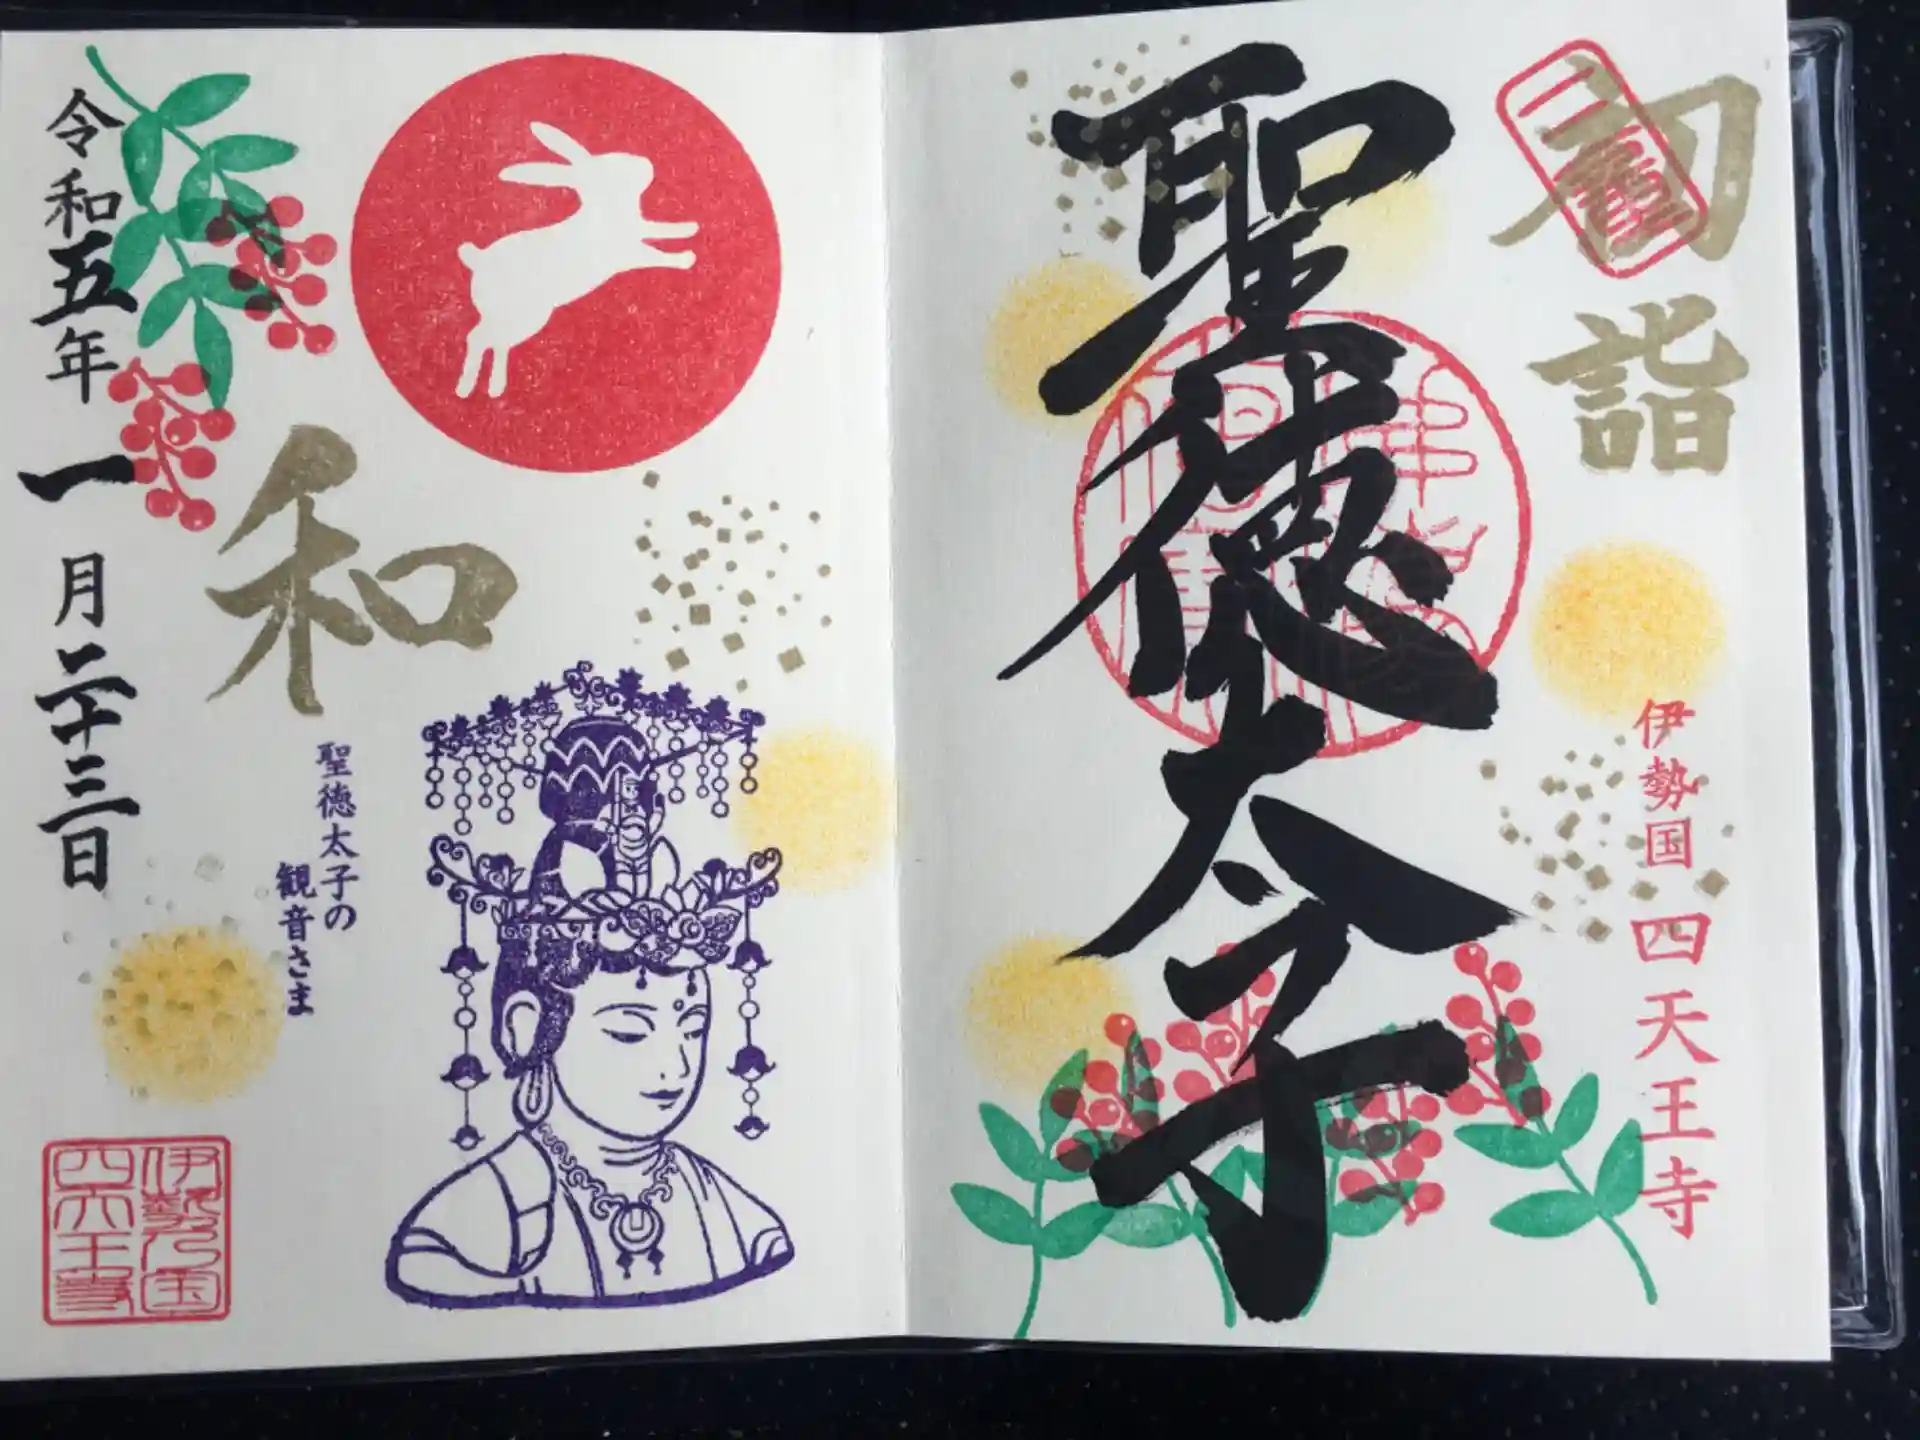 初詣
聖徳太子
伊勢国 四天王寺
和
聖徳太子の
観音さま
令和五年 一月二十三日
伊勢乃国
四天王寺